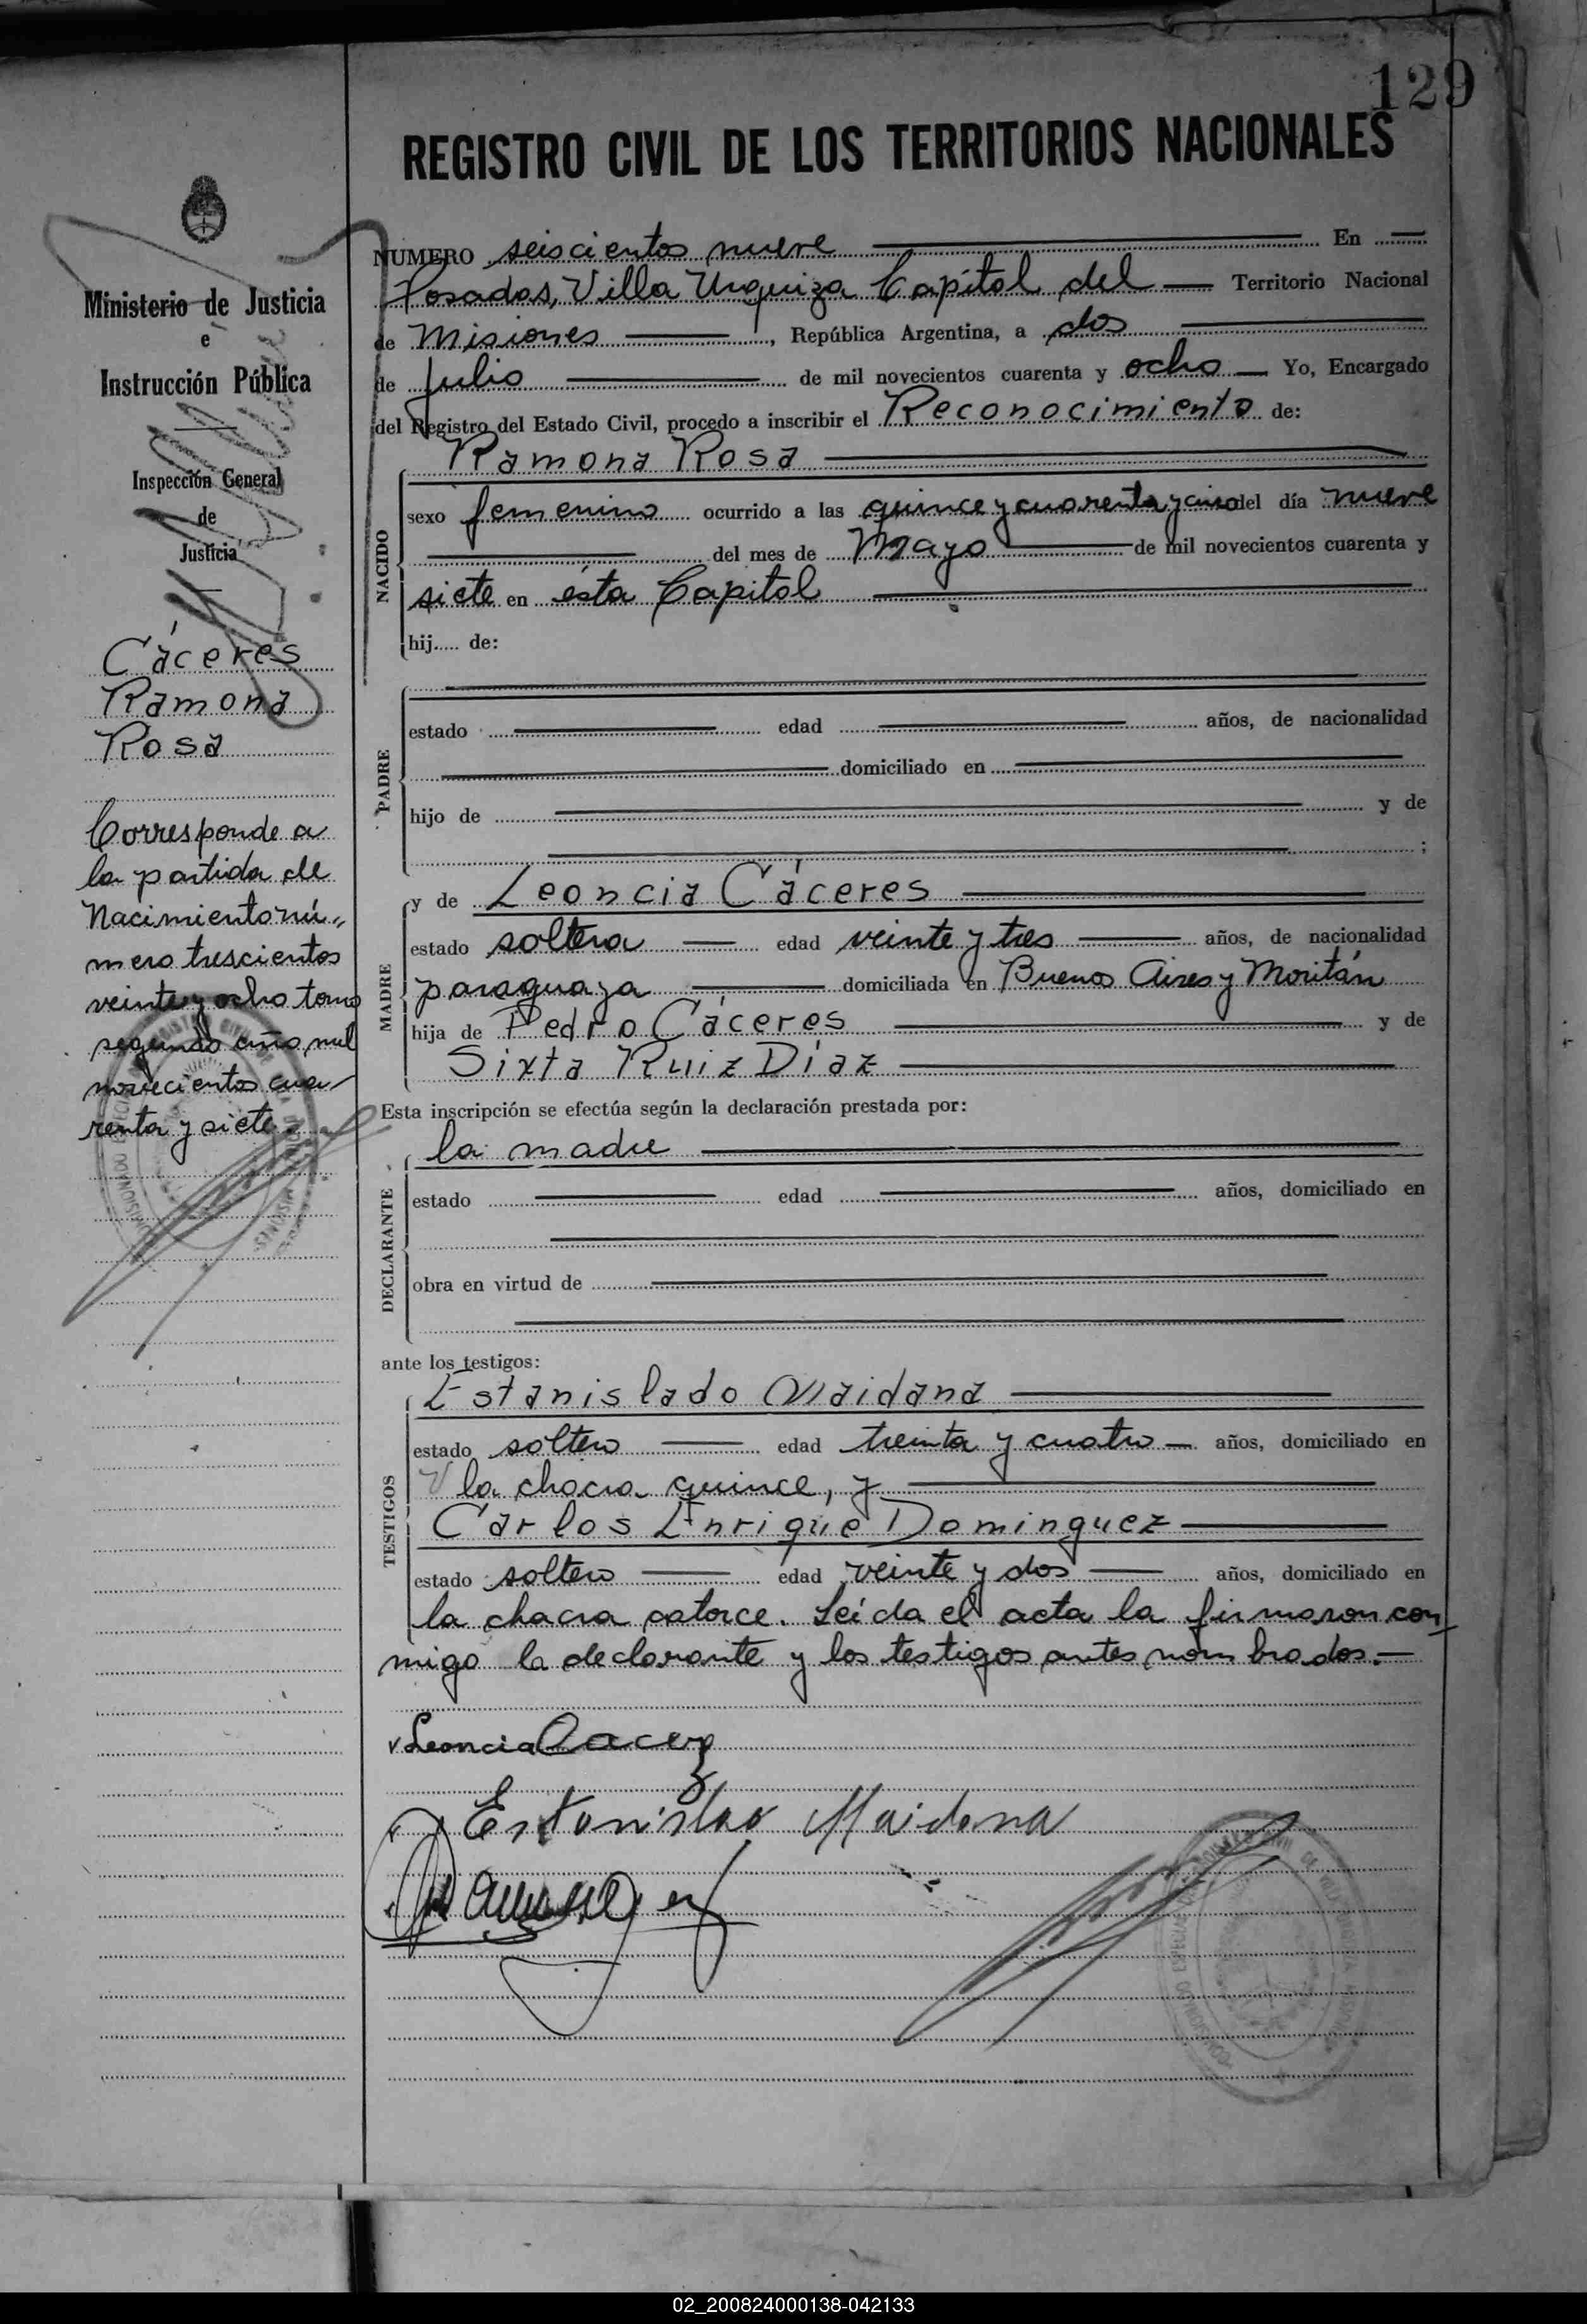 129
REGISTRO CIVIL DE LOS TERRITORIOS NACIONALES
Ministerio de Justicia
e
Instrucción Pública
Inspección General
de
Justicia
Cáceres
Ramona
Rosa
Corresponde a
la partida de
Nacimiento nú„
mero trescientos
veinte y ocho tomo
segundo año mil
novecientos cua
renta y siete.
NUMERO seiscientos nueve En
Posadas, Villa Urquiza Capital del Territorio Nacional
de Misiones, República Argentina, a dos
de Julio de mil novecientos cuarenta y ocho Yo, Encargado
del Registro del Estado Civil, procedo a inscribir el Reconocimiento de:
NACIDO
Ramona Rosa
sexo femenino ocurrido a las quince y cuarenta y cinco del día nueve
del mes de Mayo de mil novecientos cuarenta y
siete en ésta Capital
hij..... de:
PADRE
estado edad años, de nacionalidad
domiciliado en
hijo de y de
;
MADRE
y de Leoncia Cáceres
estado soltera edad veinte y tres años, de nacionalidad
paraguaya domiciliada en Buenos Aires y Moritán
hija de Pedro Cáceres y de
Sixta Ruiz Diaz
Esta inscripción se efectúa según la declaración prestada por:
DECLARANTE
la madre
estado edad años, domiciliado en
obra en virtud de
ante los testigos:
TESTIGOS
Estanislado Maidana
estado soltero edad treinta y cuatro años, domiciliado en
la chacra quince, y
Carlos Enrique Dominguez
estado soltero edad veinte y dos años, domiciliado en
la chacra catorce. Leída el acta la firmaron con
migo la declarante y los testigos antes nombrados.
Leoncia Cacerz
Estanislao Maidana
02_200824000138-042133